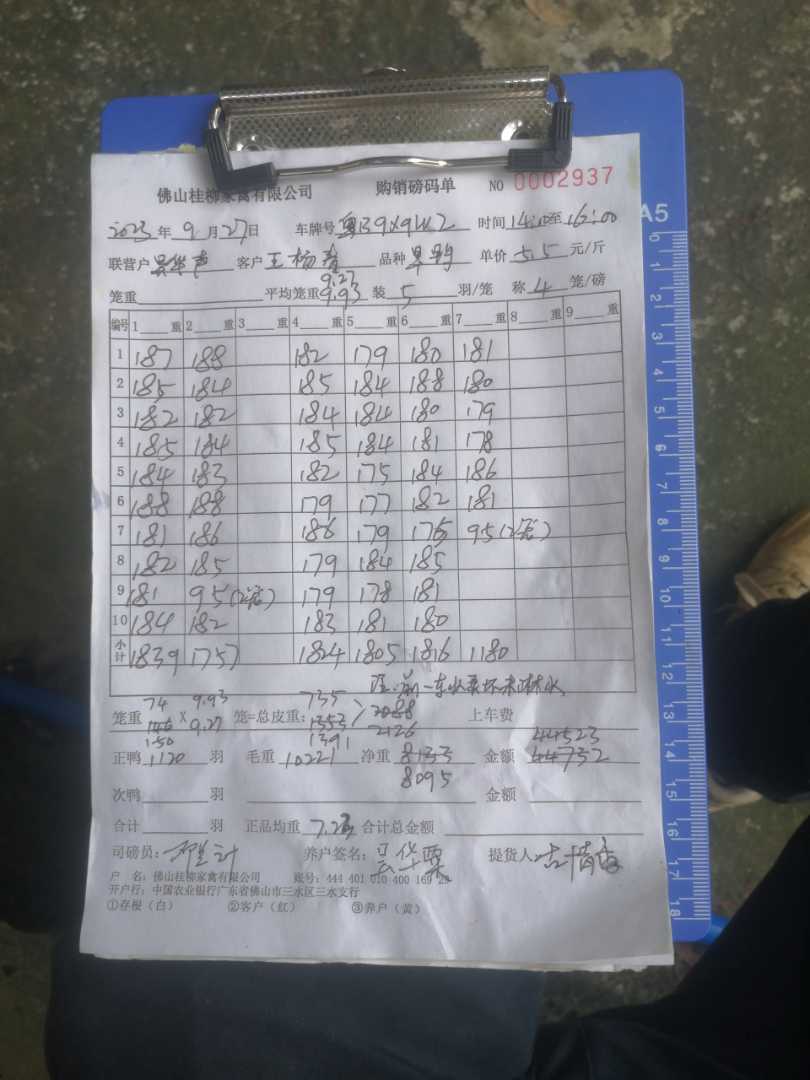 佛山桂柳家禽有限公司 购销磅码单 NO 0002937
2023年9月27日 车牌号 时间 至16:00
联营户 客户王杨青 品种 单价5.5元/斤
9.27
笼重 平均笼重9.93 装5羽/笼 称4笼/磅
编号 1 重 2 重 3 重 4 重 5 重 6 重 7 重 8 重 9 重
1 187 188 182 179 180 181
2 185 184 185 184 188 180
3 182 182 184 184 180 179
4 185 184 185 184 181 178
5 184 183 182 175 184 186
6 188 188 179 177 182 181
7 181 186 186 179 95(2笼)
8 182 185 179 184 185
9 181 95(2笼) 179 178 181
10 184 182 183 181 180
小计 1839 1757 1824 1805 1816 1180
74 9.93 735
笼重 146 × 9.27 笼=总皮重: 1353 2088 上车费
150 1391 2126 44523
正鸭1120羽 毛重10221 净重8133 金额44732
8095
次鸭 羽 金额
合计 羽 正品均重7.23 合计总金额
司磅员: 养户签名: 提货人
户 名:佛山桂柳家禽有限公司 账号:444 401 010 400 169 28
开户行:中国农业银行广东省佛山市三水区三水支行
①存根(白) ②客户(红) ③养户(黄)
A5
0
1
2
3
4
5
6
7
8
9
10
11
12
13
14
15
16
17
18